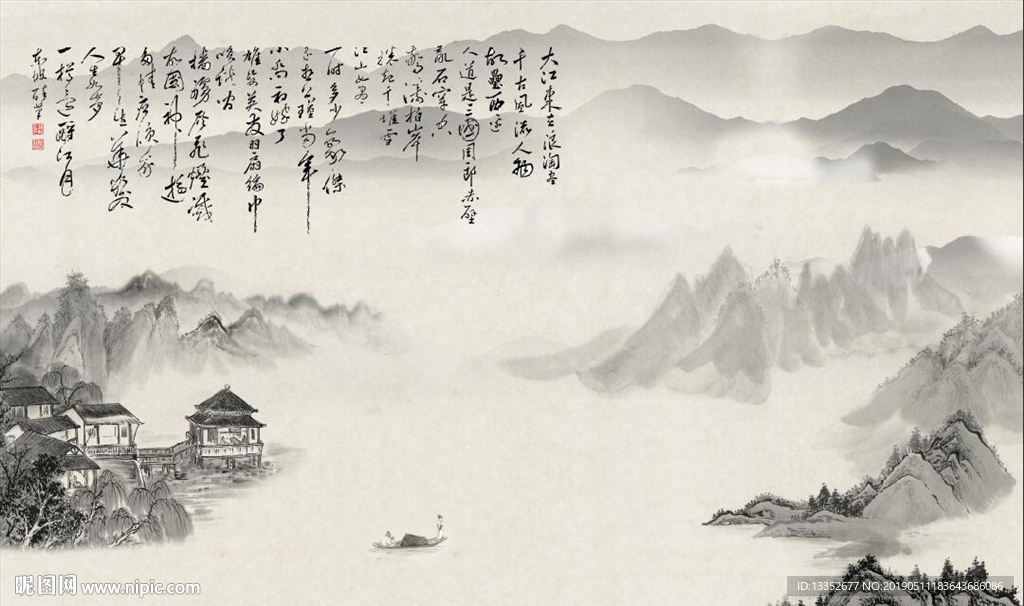 大江東去浪淘尽
千古風流人物
故壘西邊
人道是三國周郎赤壁
亂石穿空
驚濤拍岸
捲起千堆雪
江山如畫
一時多少豪傑
遙想公瑾當年
小喬初嫁了
雄姿英發羽扇綸巾
談笑間
檣櫓灰飛煙滅
故國神遊
多情應笑我
早生華髮
人生如夢
一樽還酹江月
昵图网 www.nipic.com
ID:13352677 NO:20190511183643686086